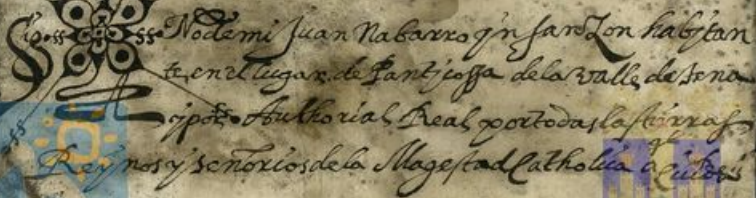 Sig no de mi Juan Nabarro ynfanzon habitan
te, en el lugar de Pantjcossa de la valle de Tena
y por Authorjal Real, por todas las tierras
Reynos y señorios de la Magestad Catholica